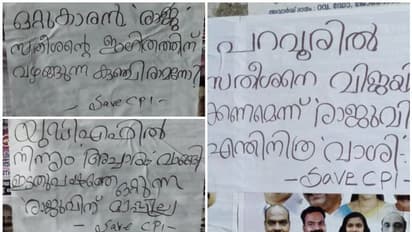 ഒറ്റുകാരൻ 'രാജു'
സതീശന്റെ ഇംഗിതത്തിന്
വഴങ്ങുന്ന കുഞ്ചിരാമനോ?
- Save CPI -
യുഡിഎഫിൽ
നിന്നും അച്ചാരം വാങ്ങി
ഇടതുപക്ഷത്തെ ഒറ്റുന്ന
'രാജുവിന് മാപ്പില്ല
- Save CPI -
പറവൂരിൽ
സതീശനെ വിജയി
ക്കണമെന്ന് 'രാജുവി
എന്തിനിത്ര 'വാശി'
- Save CPI -